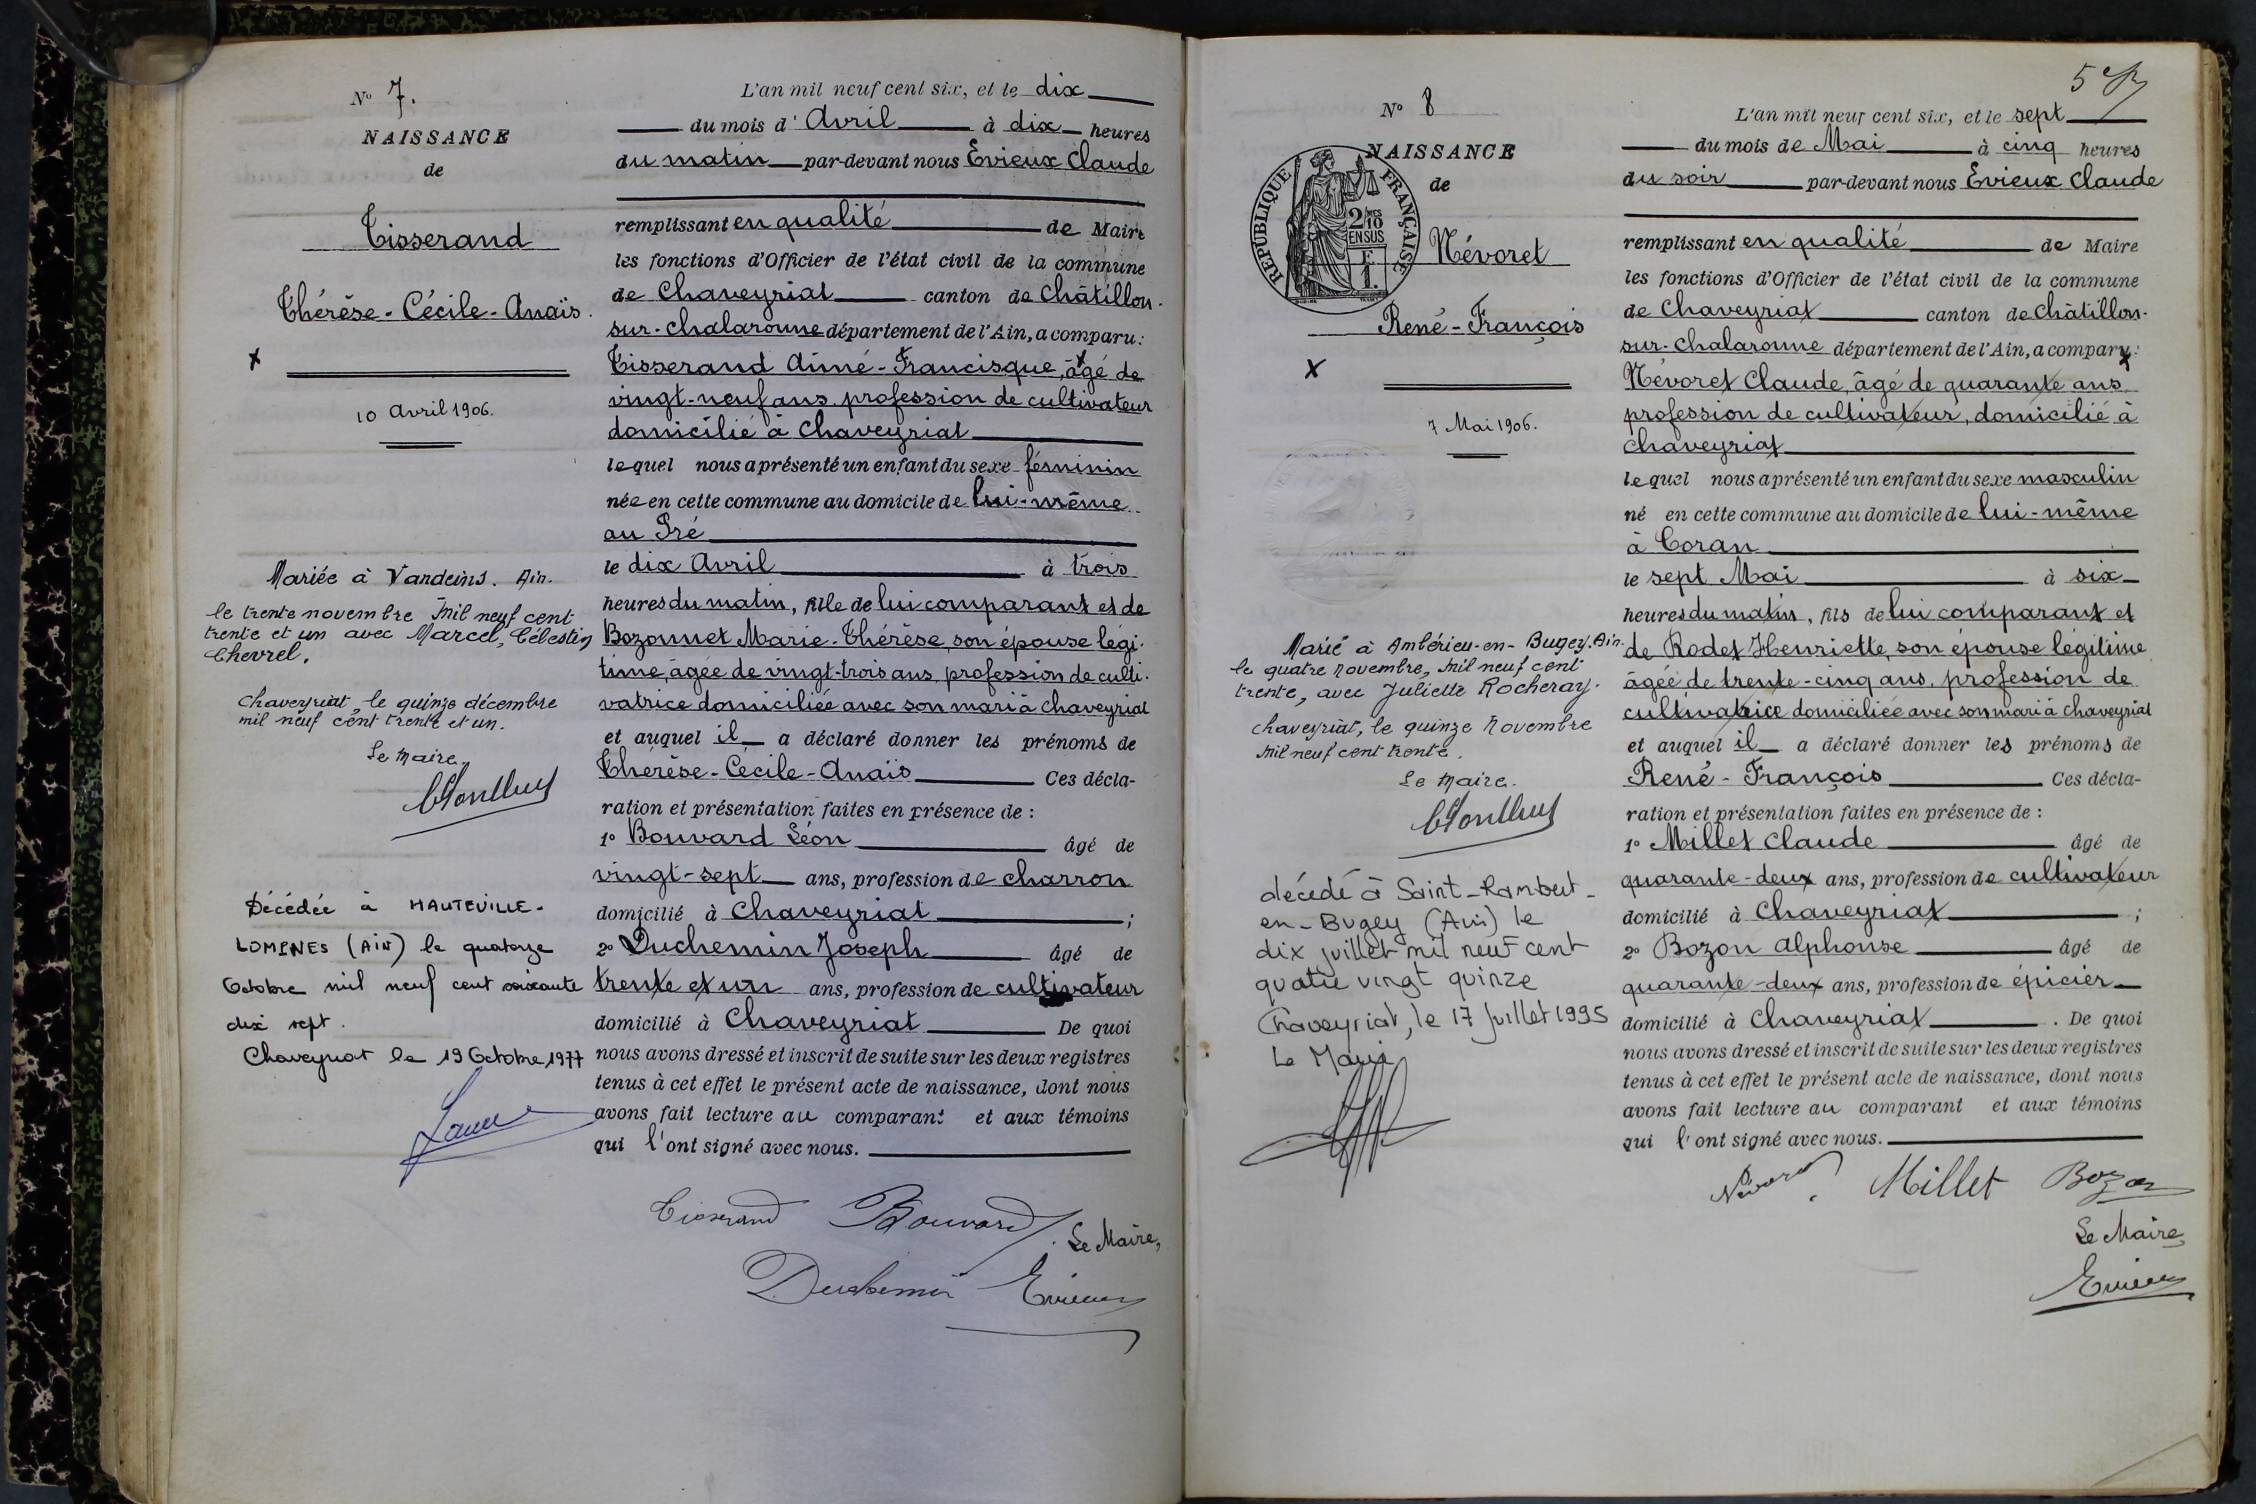 N° 7.
NAISSANCE
de
Tisserand
Thérèse-Cécile-Anaïs.
10 Avril 1906.
Mariée à Vandeins. Ain.
le trente novembre mil neuf cent
trente et un avec Marcel, Célestin
Chevrel.
Chaveyriat, le quinze décembre
mil neuf cent trente et un.
Le Maire.
Décédée à HAUTEVILLE-
LOMPNES (AIN) le quatorze
Octobre mil neuf cent soixante
dix sept.
Chaveyriat le 19 Octobre 1977
L'an mil neuf cent six, et le dix
du mois d'Avril à dix heures
du matin par-devant nous Evieux Claude
remplissant en qualité de Maire
les fonctions d'Officier de l'état civil de la commune
de Chaveyriat canton de Châtillon-
sur-Chalaronne département de l'Ain, a comparu :
Tisserand Aimé-Francisque, âgé de
vingt-neuf ans, profession de cultivateur
domicilié à Chaveyriat
lequel nous a présenté un enfant du sexe féminin
née en cette commune au domicile de lui-même
au Pré
le dix Avril à trois
heures du matin, fille de lui comparant et de
Bozonnet Marie-Thérèse, son épouse légi-
time, âgée de vingt-trois ans, profession de culti-
vatrice domiciliée avec son mari à Chaveyriat
et auquel il a déclaré donner les prénoms de
Thérèse-Cécile-Anaïs Ces décla-
ration et présentation faites en présence de :
1° Bouvard Léon âgé de
vingt-sept ans, profession de charron
domicilié à Chaveyriat ;
2° Duchemin Joseph âgé de
trente et un ans, profession de cultivateur
domicilié à Chaveyriat De quoi
nous avons dressé et inscrit de suite sur les deux registres
tenus à cet effet le présent acte de naissance, dont nous
avons fait lecture au comparant et aux témoins
qui l'ont signé avec nous.
Tisserand Bouvard
Le Maire,
Duchemin Evieux
5
N° 8
NAISSANCE
de
RÉPUBLIQUE FRANÇAISE
2/10
EN SUS
F
1.
Névoret
René-François
7 Mai 1906.
Marié à Ambérieu-en-Bugey. Ain.
le quatre novembre, mil neuf cent
trente, avec Juliette Rocheray.
Chaveyriat, le quinze novembre
mil neuf cent trente.
Le Maire.
décédé à Saint-Rambert-
en-Bugey (Ain) le
dix juillet mil neuf cent
quatre vingt quinze
Chaveyriat, le 17 juillet 1995
Le Maire
L'an mil neuf cent six, et le sept
du mois de Mai à cinq heures
du soir par-devant nous Evieux Claude
remplissant en qualité de Maire
les fonctions d'Officier de l'état civil de la commune
de Chaveyriat canton de Châtillon-
sur-Chalaronne département de l'Ain, a comparu :
Névoret Claude, âgé de quarante ans,
profession de cultivateur, domicilié à
Chaveyriat
lequel nous a présenté un enfant du sexe masculin
né en cette commune au domicile de lui-même
à Coran
le sept Mai à six
heures du matin, fils de lui comparant et
de Rodet Henriette, son épouse légitime
âgée de trente-cinq ans, profession de
cultivatrice domiciliée avec son mari à Chaveyriat
et auquel il a déclaré donner les prénoms de
René-François Ces décla-
ration et présentation faites en présence de :
1° Millet Claude âgé de
quarante-deux ans, profession de cultivateur
domicilié à Chaveyriat ;
2° Bozon Alphonse âgé de
quarante-deux ans, profession de épicier
domicilié à Chaveyriat. De quoi
nous avons dressé et inscrit de suite sur les deux registres
tenus à cet effet le présent acte de naissance, dont nous
avons fait lecture au comparant et aux témoins
qui l'ont signé avec nous.
Névoret Millet Bozon
Le Maire,
Evieux